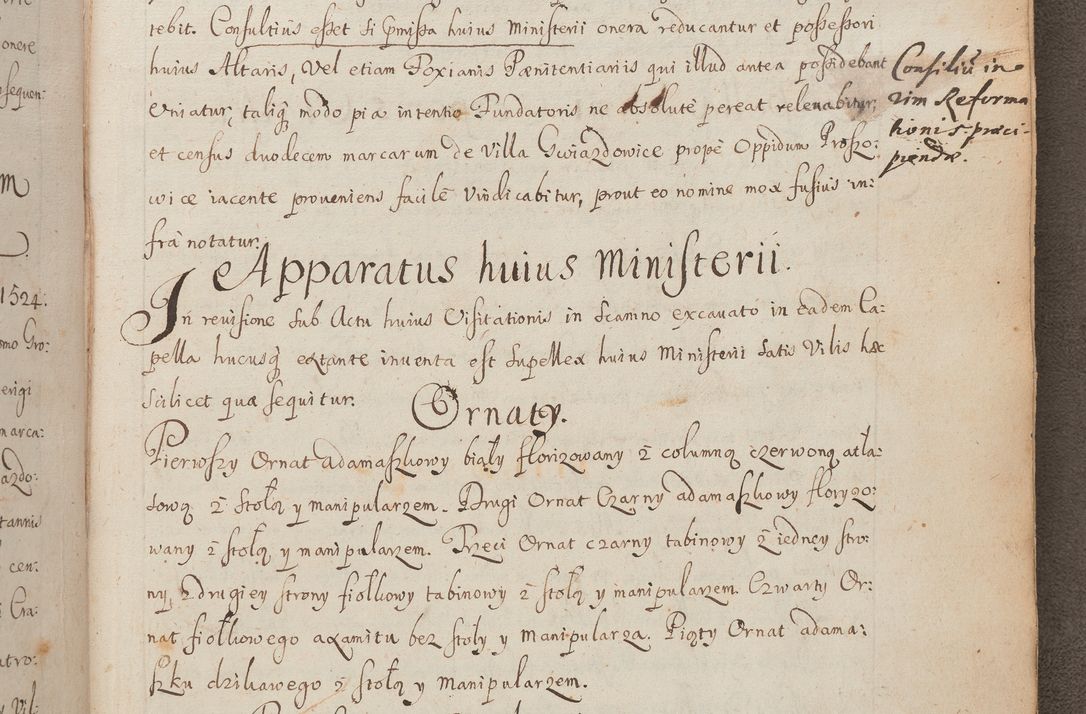 tebit. Consultius esset si præmissa huius Ministerii onera reducantur et possessori
huius Altaris, vel etiam Foxianis Pænitentiariis qui illud antea possidebant
Uniatur, taliq modo pia intentio Fundatoris ne absolutè pereat relevabitur,
et census duodecem marcarum de Villa Gwiazdowice propè Oppidum Proszo:
wice iacente proveniens facilè vindicabitur, prout eo nomine mox fusius in:
frà notatur.
Consiliũ in
rim Reforma
tionis præci-
piendæ.
Apparatus huius Ministerii.
In revisione sub Actu huius Visitationis in Scamno excavato in eadem Ca:
pella hucusq extante inventa est supellex huius Ministerii satis vilis hæc
scilicet quæ sequitur.
Ornaty.
Pierwszy Ornat adamaszkowy biały florizowany z columną czerwoną atła:
sową z stołą y manipularzem. Drugi Ornat Czarny adamaszkowy floryzo:
wany z stołą y manipularzem. Trzeci Ornat czarny tabinowy z iedney stro:
ny, z drugiey strony fiołkowy tabinowy z stołą y manipularzem. Czwarty Or:
nat fiołkowego axamitu bez stoły y manipularza. Piąty Ornat adama:
szku dzikawego z stołą y manipularzem.
onere
sequen:
m
1524.
omo Gro:
erigi
marca:
azdo:
tannis
cen:
Cra:
atro:
Vil: